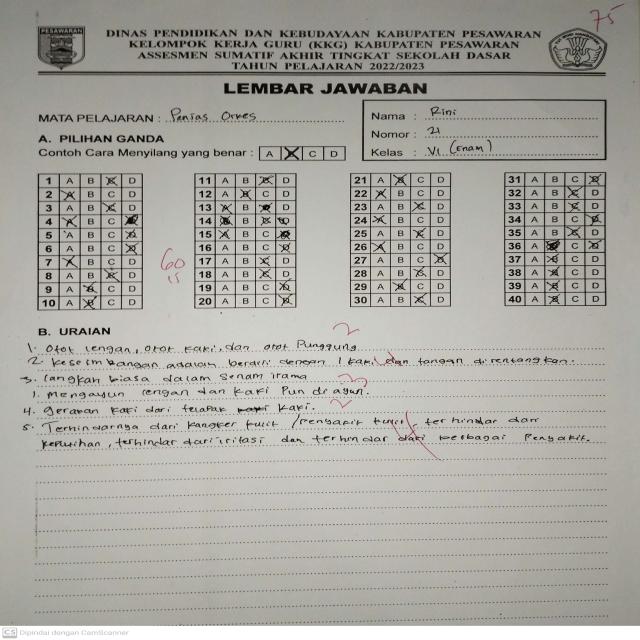 PESAWARAN
DINAS PENDIDIKAN DAN KEBUDAYAAN KABUPATEN PESAWARAN
KELOMPOK KERJA GURU (KKG) KABUPATEN PESAWARAN
ASSESMEN SUMATIF AKHIR TINGKAT SEKOLAH DASAR
TAHUN PELAJARAN 2022/2023
75
LEMBAR JAWABAN
MATA PELAJARAN : Penjas Orkes
Nama : Rini
Nomor : 21
Kelas : VI (Enam)
A. PILIHAN GANDA
Contoh Cara Menyilang yang benar : A B C D
1 A B C D 11 A B C D 21 A B C D 31 A B C D
2 A B C D 12 A B C D 22 A B C D 32 A B C D
3 A B C D 13 A B C D 23 A B C D 33 A B C D
4 A B C D 14 A B C D 24 A B C D 34 A B C D
5 A B C D 15 A B C D 25 A B C D 35 A B C D
6 A B C D 16 A B C D 26 A B C D 36 A B C D
7 A B C D 17 A B C D 27 A B C D 37 A B C D
8 A B C D 18 A B C D 28 A B C D 38 A B C D
9 A B C D 19 A B C D 29 A B C D 39 A B C D
10 A B C D 20 A B C D 30 A B C D 40 A B C D
60
15
B. URAIAN
1. Otot lengan, otot kaki, dan otot Punggung 2
2. keseimbangan adalah berdiri dengan 1 kaki dan tangan direntangkan.
3. langkah biasa dalam Senam irama
1. Mengayun lengan dan kaki Pun di ayun. 3
4. Gerakan kaki dari telapak kaki. 2
5. Terhindarnya dari kangker kulit / penyakit kulit, terhindar dari
keputihan, terhindar dari iritasi dan terhindar dari berbagai Penyakit.
CS Dipindai dengan CamScanner